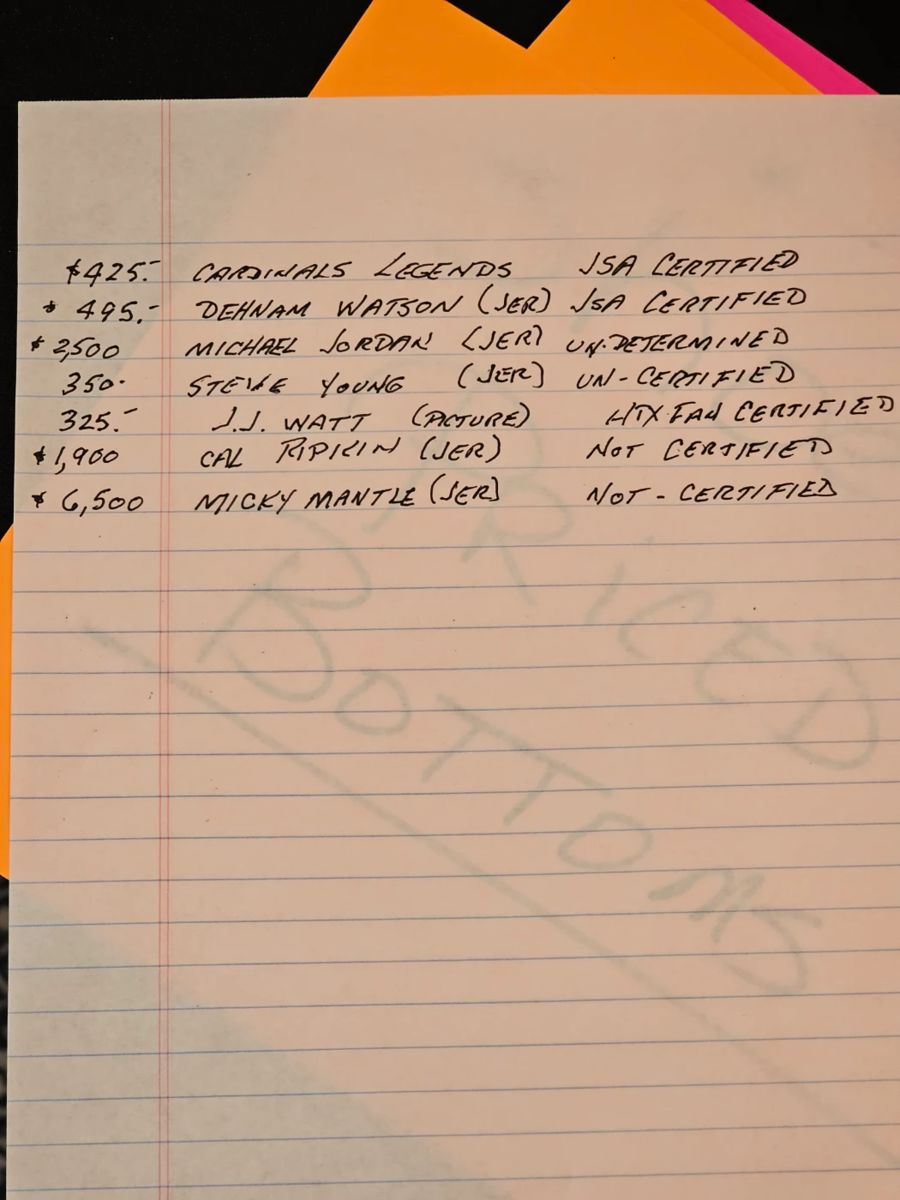 $425.- CARDINALS LEGENDS JSA CERTIFIED
$495.- DEHNAM WATSON (JER) JSA CERTIFIED
MICHAEL JORDAN (JER) UN-DETERMINED
350.- STEVE YOUNG (JER) UN-CERTIFIED
325.- J.J. WATT (PICTURE) HTX FAN CERTIFIED
$1,900 CAL RIPKIN (JER) NOT CERTIFIED
$6,500 MICKY MANTLE (JER) NOT-CERTIFIED
PRICED
BOTTOMS